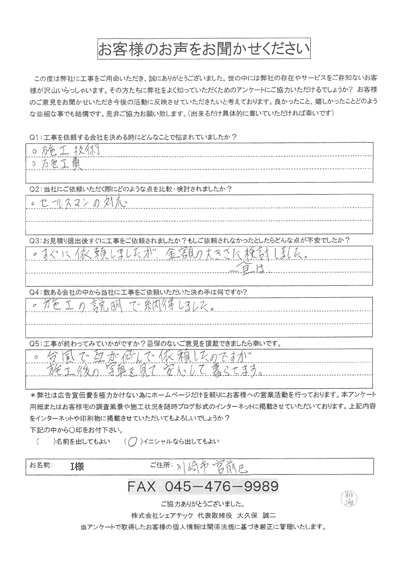 お客様のお声をお聞かせください
この度は弊社に工事をご用命いただき、誠にありがとうございました。世の中には弊社の存在やサービスをご存知ないお客
様が沢山いらっしゃいます。その方たちに弊社をよく知っていただくためのアンケートにご協力いただけるでしょうか？ お客様
のご意見をお聞かせいただき今後の活動に反映させていただきたいと考えております。良かったこと、嬉しかったことどのよう
な些細な事でも結構です。是非ご協力お願い致します。（出来るだけ具体的に書いていただければ幸いです）
Q1:工事を依頼する会社を決める時にどんなことで悩まれていましたか？
○ 施工技術
○ 施工費
Q2:当社にご依頼いただく際にどのような点を比較・検討されましたか？
○ セールスマンの対応
Q3:お見積り提出後すぐに工事をご依頼されましたか？もしご依頼されなかったとしたらどんな点が不安でしたか？
○ すぐに依頼しましたが 金額の大きさに検討しました。
Q4:数ある会社の中から当社に工事をご依頼いただいた決め手は何ですか？
○ 施工の説明で納得しました。
Q5:工事が終わってみていかがですか？忌憚のないご意見を頂戴できましたら幸いです。
○ 台風で瓦が飛んで依頼したのですが
施工後の写真を見て安心して暮らせます。
＊弊社は広告宣伝費を極力かけない為にホームページだけを頼りにお客様への営業活動を行っております。本アンケート
用紙またはお客様宅の調査風景や施工状況を随時ブログ形式のインターネットに掲載させていただいております。上記内容
をインターネットや印刷物に掲載させていただいてもよろしいでしょうか？
下記の中から○印をお付下さい。
（ ）名前を出してもよい （○）イニシャルなら出してもよい
お名前: I様 ご住所: 川崎市宮前区
FAX 045-476-9989
ご協力ありがとうございました。
株式会社シェアテック 代表取締役 大久保 誠二
当アンケートで取得したお客様の個人情報は関係法規に基づき厳正に管理いたします。